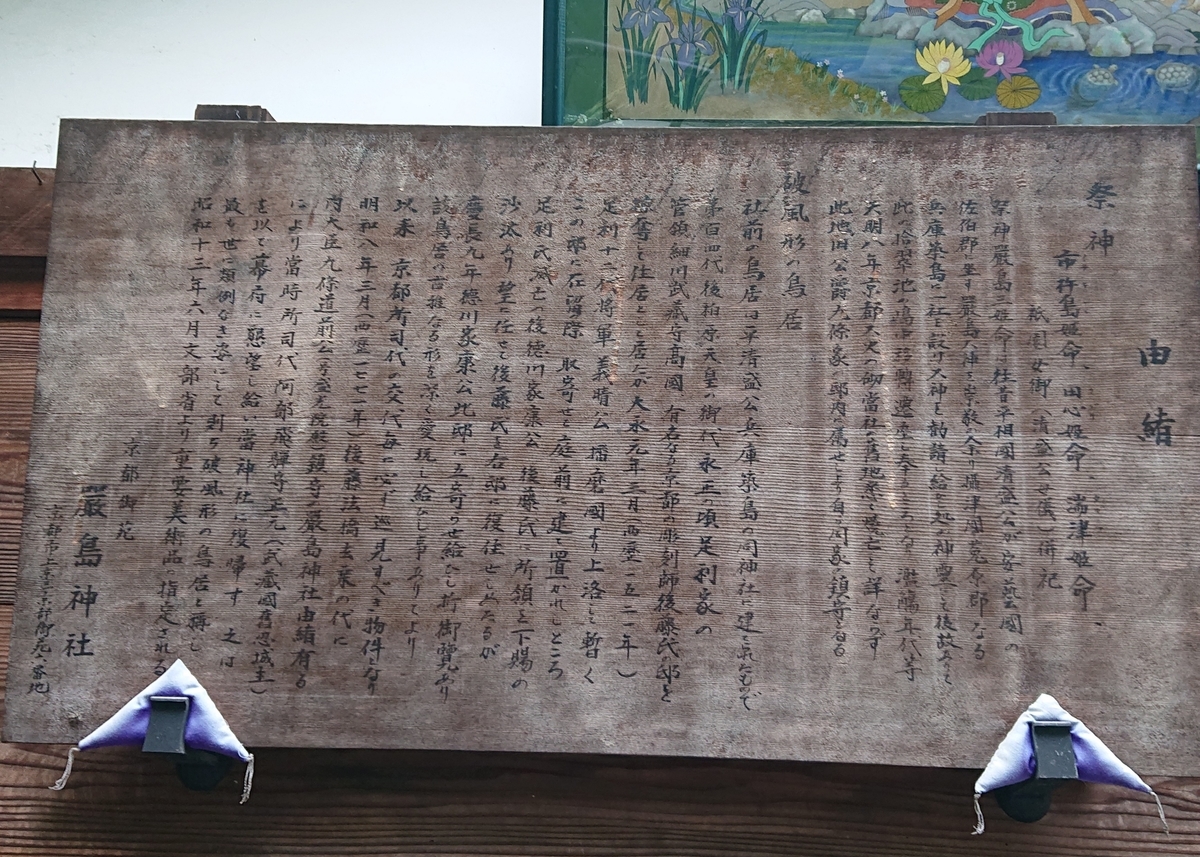 由緒
祭神
市杵島姫命、田心姫命、湍津姫命
祇園女御(清盛公母儀)併祀
祭神嚴島三姫命は往昔平相國清盛公が安芸國の
佐伯郡に坐す嚴島大神を崇敬の余り摂津國菟原郡なる
兵庫築島に一社を設け大神を勧請し給し処の神霊にて後故ありて
此の拾翠池の
天明八年京都大火の砌當社の旧地悉く
此地旧公爵九條家の邸内に属せしより自ら同家の鎮守たる
破風形の鳥居
社前の鳥居は平清盛公兵庫築島の同神社に建之たるもので
第百四代後柏原天皇の御代永正の頃足利家の
管領細川武蔵守高國 有名なる京都の彫刻師後藤氏の邸を
住居とし居たが大永元年三月(西歴一五二一年)
足利十二代将軍義晴公 播磨國より上洛して暫く
この邸に在留の際 取寄せて庭前に建て置かれしところ
足利氏滅亡の後徳川家康公 後藤氏に所領を下賜の
沙汰あり 望に任せて後藤氏を右邸に復住せしめたるが
慶長九年徳川家康公此邸に立寄らせ給ひし折御覧あり
該鳥居の古雅なる形を深く愛玩し給ひし事ありてより
以来 京都所司代の交代毎に必ず巡見すべき物件となり
明和八年三月(西歴一七七一年)後藤法橋玄乗の代に
内大臣九條道前公
により當時所司代 阿部飛騨守正元(武蔵國旧忍城主)
を以て幕府に懇望し給い當神社に復帰す 之は
最も世に類例なき姿にして則ち破風形の鳥居と稱し
昭和十三年六月文部省より重要美術品に指定される
京都御苑
嚴島神社
京都市上京区京都御苑六番地